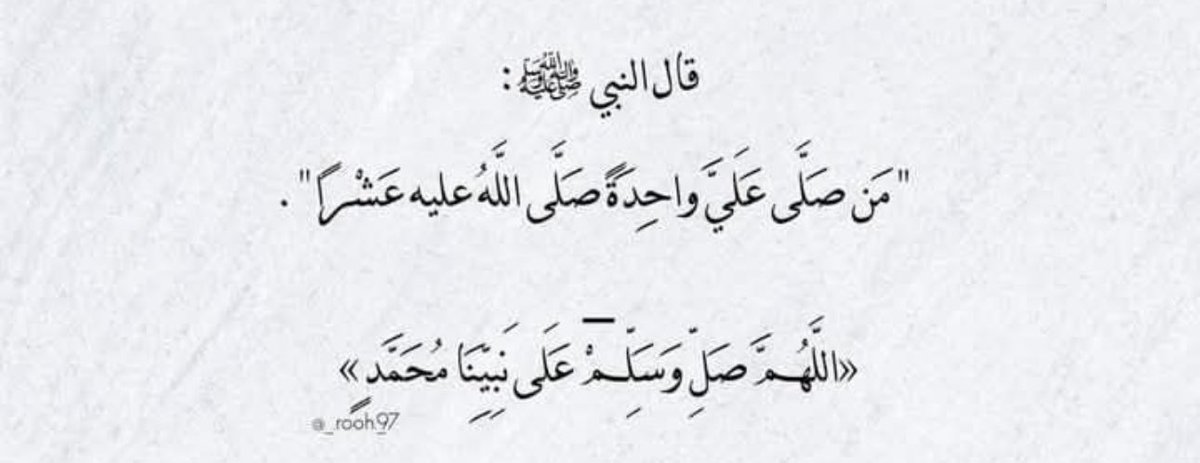 قال النبي ﷺ:
"مَن صَلَّى عَلَيَّ واحِدَةً صَلَّى اللَّهُ عليه عَشْراً".
«اللَّهُمَّ صَلِّ وَسَلِّمْ عَلَى نَبِيِّنَا مُحَمَّدٍ»
@_rooh.97